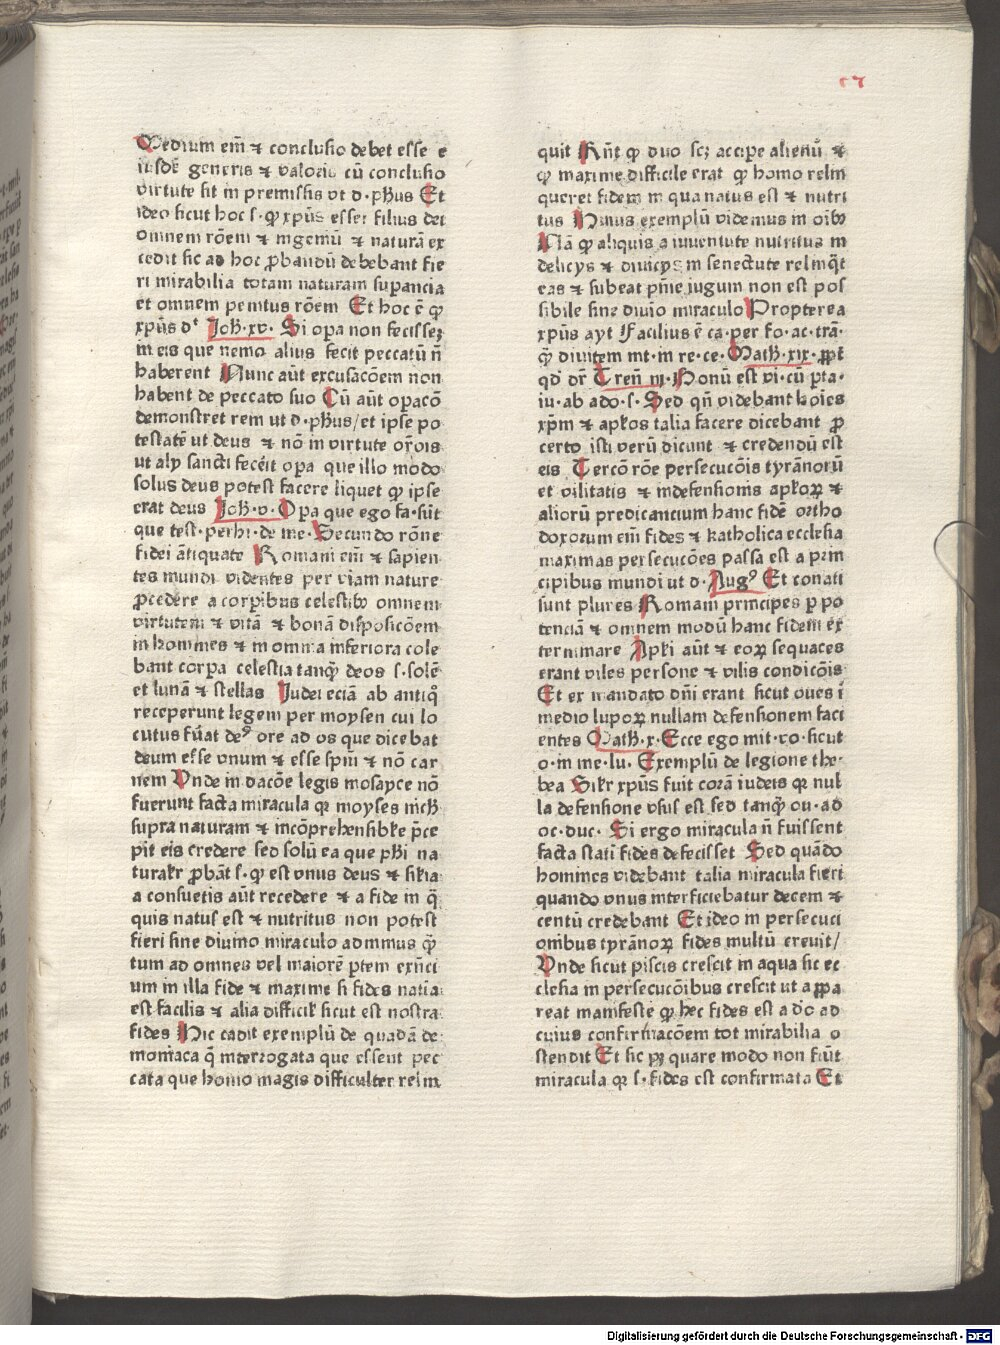 57
Medium em̄ ⁊ conclusio debet esse e
iusdē generis ⁊ valoris cū conclusio
virtute sit in premissis vt d·pħus Et
ideo sicut hoc s·ꝙ xp̄us esset filius dei
omnem rōem ⁊ ingeniū ⁊ naturā ex
cedit sic ad hoc ꝓbandū debebant fie
ri mirabilia totam naturam supancia
et omnem penitus rōem Et hoc ē ꝙ
xp̄us dᵗ Joħ·xv· Si opa non fecisseꝫ
in eis que nemo alius fecit peccatū n̄
haberent Nunc aūt excusacōem non
habent de peccato suo Cū aūt opacō
demonstret rem ut d·pħus/et ipse po
testatē ut deus ⁊ nō in virtute or̄ois
ut alij sancti fecēit opa que illo modo
solus deus potest facere liquet ꝙ ipse
erat deus Joħ·v·Opa que ego fa·sūt
que test·perhi·de me·Secundo rōne
fidei ātiquate Romani em̄ ⁊ sapien
tes mundi videntes per viam nature
ꝓcedere a corꝑibus celestibꝫ omnem
virtutem ⁊ vitā ⁊ bonā disposicōem
in homines ⁊ in omnia inferiora cole
bant corpa celestia tanqͣ deos s·solē
et lunā ⁊ stellas Judei eciā ab antiqͦ
receperunt legem per moysen cui lo
cutus fūat deꝰ ore ad os que dicebat
deum esse vnum ⁊ esse spm̄ ⁊ nō car
nem Vnde in dacōe legis mosayce nō
fuerunt facta miracula qꝛ moyses nicħ
supra naturam ⁊ incōprehensibłe p̄ce
pit eis credere sed solū ea que pħi na
turałr ꝓbāt s·ꝙ est vnus deus ⁊ siłia
a consuetis aūt recedere ⁊ a fide in q̄
quis natus est ⁊ nutritus non potest
fieri sine diuino miraculo adminus qͣ
tum ad omnes vel maiorē ꝑtem exn̄ci
um in illa fide ⁊ maxime si fides natia
est facilis ⁊ alia difficił sicut est nostra
fides Hic cadit exemplū de quadā de
moniaca q̄ interrogata que essent pec
cata que homo magis difficulter relin
quit Rn̄t ꝙ duo scꝫ accipe alienū ⁊
ꝙ maxime difficile erat ꝙ homo relin
queret fidem in qua natus est ⁊ nutri
tus Huius exemplū videmus in oībꝫ
Nā ꝙ aliquis a iuuentute nutritus in
delicijs ⁊ diuicijs in senectute relinqͣt
eas ⁊ subeat pn̄ie iugum non est pos
sibile sine diuīo miraculo Propterea
xp̄us ayt Facilius ē ca·per fo·ac·trā·
qͣ diuitem int·in re·ce·Math·xix·ꝓpt̄
qd̄ dr̄ Tren̄ iij·Bonū est vi·cū pta·
iu·ab ado·s·Sed qn̄ videbant hoīes
xp̄m ⁊ apłos talia facere dicebant ꝓ
certo isti verū dicunt ⁊ credendū est
eis Tercō rōe persecucōis tyrānorū
et vilitatis ⁊ indefensionis apłoꝝ ⁊
aliorū predicancium hanc fidē ortho
doxorum em̄ fides ⁊ katholica ecclesia
maximas persecucōes passa est a prin
cipibus mundi ut d·Augꝰ Et conati
sunt plures Romani principes ꝑ po
tenciā ⁊ omnem modū hanc fidem ex
terminare Apłi aūt ⁊ eoꝝ sequaces
erant viles persone ⁊ vilis condicōis
Et ex mandato dn̄i erant sicut oues ī
medio lupoꝝ nullam defensionem faci
entes Math·x·Ecce ego mit·vo·sicut
o·in me·lu· Exemplū de legione the·
bea Siłr xp̄us fuit corā iudeis qꝛ nul
la defensione vsus est sed tanqͣ ou·ad
oc·duc· Si ergo miracula n̄ fuissent
facta statī fides defecisset Sed quādo
homines videbant talia miracula fieri
quando vnus interficiebatur decem ⁊
centū credebant Et ideo in persecuci
onibus tyrānoꝝ fides multū creuit/
Vnde sicut piscis crescit in aqua sic ec
clesia in persecucōibus crescit ut aꝑpa
reat manifeste ꝙ hec fides est a dō ad
cuius confirmacōem tot mirabilia o
stendit Et sic pꝫ quare modo non fiūt
miracula qꝛ s·fides est confirmata Et
Digitalisierung gefördert durch die Deutsche Forschungsgemeinschaft - DFG